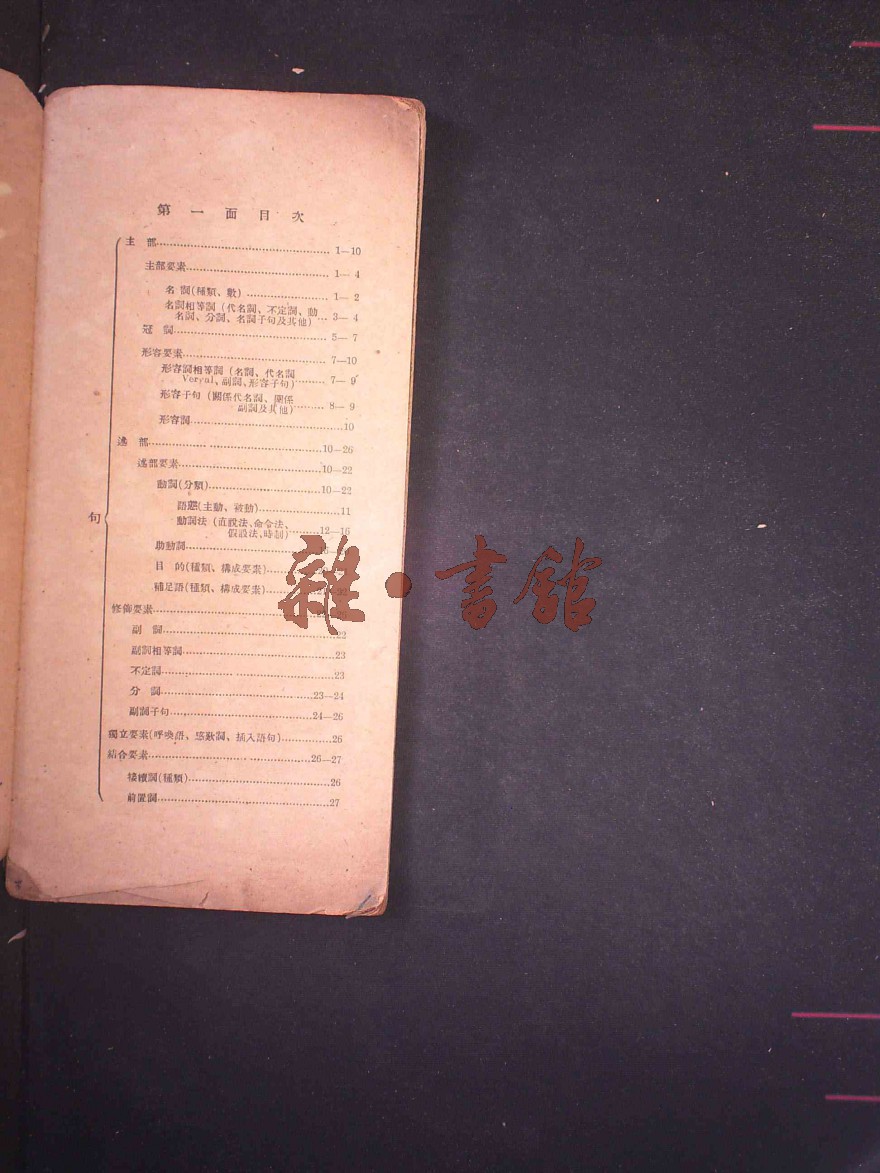 第一面目次
句
主 部 1—10
主部要素 1— 4
名 詞(種類、數) 1— 2
名詞相等詞 (代名詞、不定詞、動
名詞、分詞、名詞子句及其他) 3— 4
冠 詞 5— 7
形容要素 7—10
形容詞相等詞 (名詞、代名詞
Veryal、副詞、形容子句) 7— 9
形容子句 (關係代名詞、關係
副詞及其他) 8— 9
形容詞 10
述 部 10—26
述部要素 10—22
動詞(分類) 10—22
語態(主動、被動) 11
動詞法 (直說法、命令法、
假設法、時制) 12—16
助動詞
目 的(種類、構成要素)
補足語(種類、構成要素)
修飾要素
副 詞 22
副詞相等詞 23
不定詞 23
分 詞 23—24
副詞子句 24—26
獨立要素(呼喚語、感歎詞、插入語句) 26
結合要素 26—27
接續詞(種類) 26
前置詞 27
雜·書館